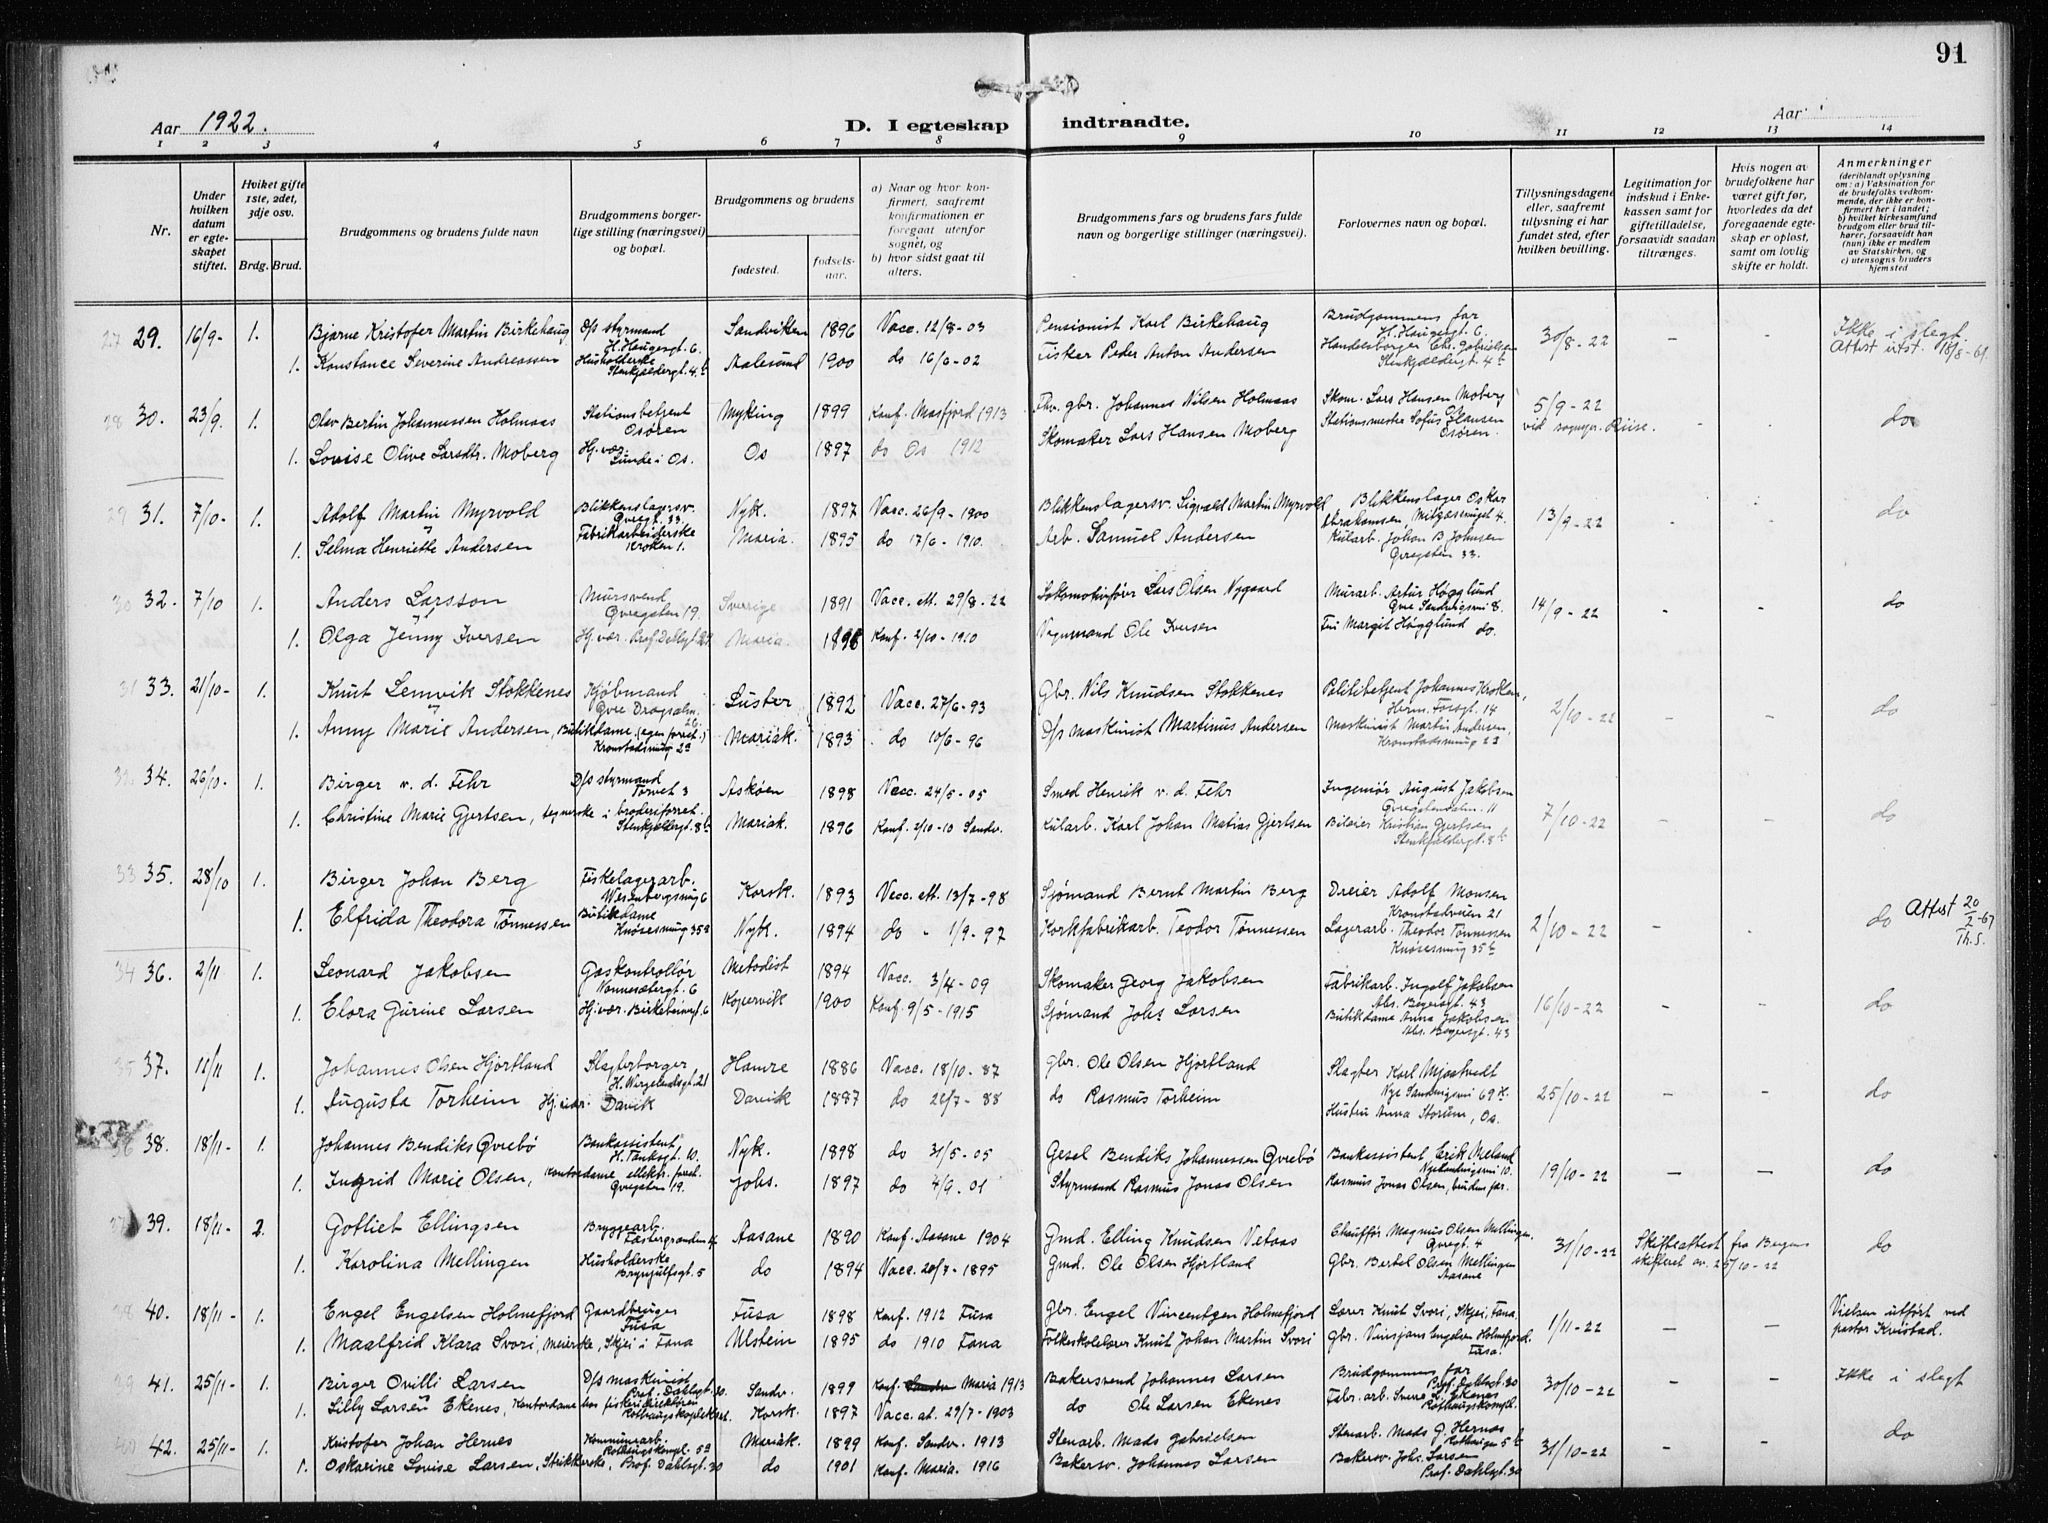 91
Aar 1922.
D. I egteskap indtraadte.
Aar
1 2 3 4 5 6 7 8 9 10 11 12 13 14
Nr.
Under hvilken datum er egteskapet stiftet.
Hviket gifte 1ste, 2det, 3dje osv.
Brdg. Brud.
Brudgommens og brudens fulde navn
Brudgommens borgerlige stilling (næringsvei) og bopæl.
Brudgommens og brudens
fødested.
fødselsaar.
a) Naar og hvor konfirmert, saafremt konfirmationen er foregaat utenfor sognet, og
b) hvor sidst gaat til alters.
Brudgommens fars og brudens fars fulde navn og borgerlige stillinger (næringsvei).
Forlovernes navn og bopæl.
Tillysningsdagene eller, saafremt tillysning ei har fundet sted, efter hvilken bevilling.
Legitimation for indskud i Enkekassen samt for giftetilladelse, forsaavidt saadan tiltrænges.
Hvis nogen av brudefolkene har været gift før, hvorledes da det foregaaende egteskap er opløst, samt om lovlig skifte er holdt.
Anmerkninger
(deriblandt oplysning om: a) Vaksination for de brudefolks vedkommende, der ikke er konfirmert her i landet;
b) hvilket kirkesamfund brudgom eller brud tilhører, forsaavidt han (hun) ikke er medlem av Statskirken, og
c) utensogns bruders hjemsted
27 29. 16/9- 1. Bjarne Kristofer Martin Birkehaug D/s styrmand H. Haugesgt. 6. Sandviken 1896 Vacc. 12/8-03 Pensionist Karl Birkehaug Brudgommens far H. Haugesgt. 6. 30/8-22 - - Ikke i slegt
1. Konstance Severine Andreassen Husholderske Stenkjeldergt. 4b Aalesund 1900 do 16/6-02 Fisker Peder Anton Andersen Handelsborger Chr. Gabrielsen Stenkjeldergt. 4b Attest utst. 18/8-61
28 30. 23/9. 1. Olav Bertin Johannessen Holmaas Stationsbetjent Osören Myking 1899 Konf. Masfjord 1913 Fhv. gbr. Johannes Nilsen Holmaas Skom. Lars Hansen Moberg Os 5/9-22 - - do
1. Lovise Olive Larsdtr. Moberg Hj. vær. Lunde i Os. Os 1897 do Os 1912 Skomaker Lars Hansen Moberg Stationsmester Sofus Hansen Osören. ved sognepr. Riise.
29 31. 7/10- 1. Adolf Martin Myrvold Blikkenslagersv. Øvregt. 33. Nyk. 1897 Vacc. 26/9-1900 Blikkenslagersv. Sigvald Martin Myrvold Blikkenslager Oskar Abrahamsen, 13/9-22 - - do
1. Selma Henriette Andersen Fabrikarbeiderske Kroken 1. Maria. 1895 do 17/6-1910. Arb. Samuel Andersen Kularb. Johan B. Johnsen Øvregaten 33.
30 32. 7/10 1. Anders Larsson Mursvend Øvregaten 19. Sverige 1891 Vacc. att. 29/8-22 Lokomotivfører Lars Olsen Nygaard Murarb. Artur Högglund Øvre Sandvigsvei 8. 14/9-22 - - do
1. Olga Jenny Iversen Hj. vær. Prof. Dahlsgt. Maria. Konf. 2/10-1910 Vognmand Ole Iversen Fru Margit Högglund do.
31 33. 21/10- 1. Knut Lemvik Stokkenes Kjøbmand Øvre Dragsalm. 26. Luster 1892 Vacc. 27/6-93 Gbr. Nils Knudsen Stokkenes Politibetjent Johannes Krokken, Herm. Fossgt. 14 2/10-22 - - do
1. Anny Marie Andersen, Butikdame (egen forret.) Kronstadsmug 2a Mariak. 1893 do 10/6-96 D/s maskinist Martinus Andersen Maskinist Martin Andersen, Kronstadsmug 2a
34. 26/10- 1. Birger v. d. Fehr D/s styrmand Torvet 3 Askøen 1898 Vacc. 24/5-05 Smed Henrik v. d. Fehr Ingeniør August Jakobsen Øvregatenalm. 11 7/10-22 - - do
1. Christine Marie Gjertsen, tegnerske i broderiforret. Stenkjeldergt. 8b Mariak. 1896 Konf. 2/10-10 Sandv. Kularb. Karl Johan Matias Gjertsen Bileier Kristian Gjertsen Stenkjeldergt. 8b
33 35. 28/10 1. Birger Johan Berg Fiskelagerarb. Wesenbergsmug 6 Korsk. 1893 Vacc. att. 13/7-98 Sjømand Bernt Martin Berg Dreier Adolf Monsen Kronstadveien 21 2/10-22 - - do Attest 20/2-67 Th. S.
1. Elfrida Theodora Tønnessen Butikdame Knøsesmug 35a Nyk. 1894 do " 1/9-97 Korkfabrikarb. Teodor Tønnessen Lagerarb. Theodor Tønnessen Knøsesmug 35b
34 36. 2/11 1. Leonard Jakobsen Gaskontrollør Nonnesætergt. 6 Metodist 1894 Vacc. 3/4-09 Skomaker Georg Jakobsen Fabrikarb. Ingolf Jakobsen Abs. Beyersgt. 43 16/10-22 - - do
1. Elora Gurine Larsen Hj. vær. Birkebeinergt. 6 Kopervik 1900 Konf. 9/5-1915 Sjømand Johs Larsen Butikdame Anna Jakobsen Abs. Beyersgt. 43
35 37. 11/11 1. Johannes Olsen Hjortland Slagterborger H. Wergelandsgt. 21 Hamre 1886 Vacc. 18/10-87 Gbr. Ole Olsen Hjortland Slagter Karl Mjøstvedt Nye Sandvigsvei 69 25/10-22 - - do
1. Augusta Torheim Hj. vær. Davik Davik 1887 do 22/7-88 do Rasmus Torheim Hustru Anna Storum, Os.
36 38. 18/11- 1. Johannes Bendiks Øvrebø Bankassistent, H. Tanksgt. 10. Nyk. 1898 do 31/5-05 Gesel Bendiks Johannessen Øvrebø Bankassistent Erik Meland Nye Sandvigsvei 10. 19/10-22 - - do
1. Ingrid Marie Olsen, Kontordame, elektr. forret. Øvregaten 19. Johs. 1897 do 4/9-01 Styrmand Rasmus Jonas Olsen Rasmus Jonas Olsen, brudens far.
39. 18/11- 2. Gotlieb Ellingsen Bryggearb. Fæstergranden 4 Aasane 1890 Konf. Aasane 1904 Gmd. Elling Knudsen Vetaas Chauffør Magnus Olsen Mellingen, Øvregt. 4 31/10-22 Skifteattest fra Bergens skifteret av 25/10-22 do
1. Karolina Mellingen Husholderske Brynjulfsgt. 5 do 1894 Vacc. 20/7-1895 Gmd. Ole Olsen Hjortland Gbr. Bertel Olsen Mellingen Aasane
38 40. 18/11- 1. Engel Engelsen Holmefjord Gaardbruger Fusa Fusa 1898 Konf. 1912 Fusa Gbr. Engel Vincentsen Holmefjord Lærer Knut Svori, Skjei, Fana. 1/11-22 - - Vielsen utført ved pastor Knistad.
1. Maalfrid Klara Svori, Meierske, Skjei i Fana Ulstein 1895 do 1910 Fana Folkeskolelærer Knut Johan Martin Svori Gbr. Vinsjans Engelsen Holmefjord. Fusa.
39 41. 25/11- 1. Birger Ovilli Larsen D/s maskinist Prof. Dahlsgt. 30 Sandv. 1899 Konf. Maria 1913 Bakersvend Johannes Larsen Brudgommens far Prof. Dahlsgt. 30 30/10-22 - - Ikke i slegt
1. Lilly Larsen Ekenes, Kontordame hos fiskeridirektören Rothaugskomplekset. Korsk. 1897 Vacc. at. 29/7-1903 do Ole Larsen Ekenes Fabr. arb. Sverre L. Ekenes Rothaugskompl.
40 42. 25/11- 1. Kristofer Johan Hernes Kommunearb. Rothaugskompl. 5a Mariak. 1899 Konf. Sandv. 1913 Stenarb. Mads Gabrielsen Stenarb. Mads G. Hernes Rothaugen 5b 31/10-22 - - do
1. Oskarine Lovise Larsen, Strikkerske, Prof. Dahlsgt. 30 do 1901 Konf. Maria. 1916 Bakersv. Johannes Larsen Bakersv. Johs. Larsen Prof. Dahlsgt. 30